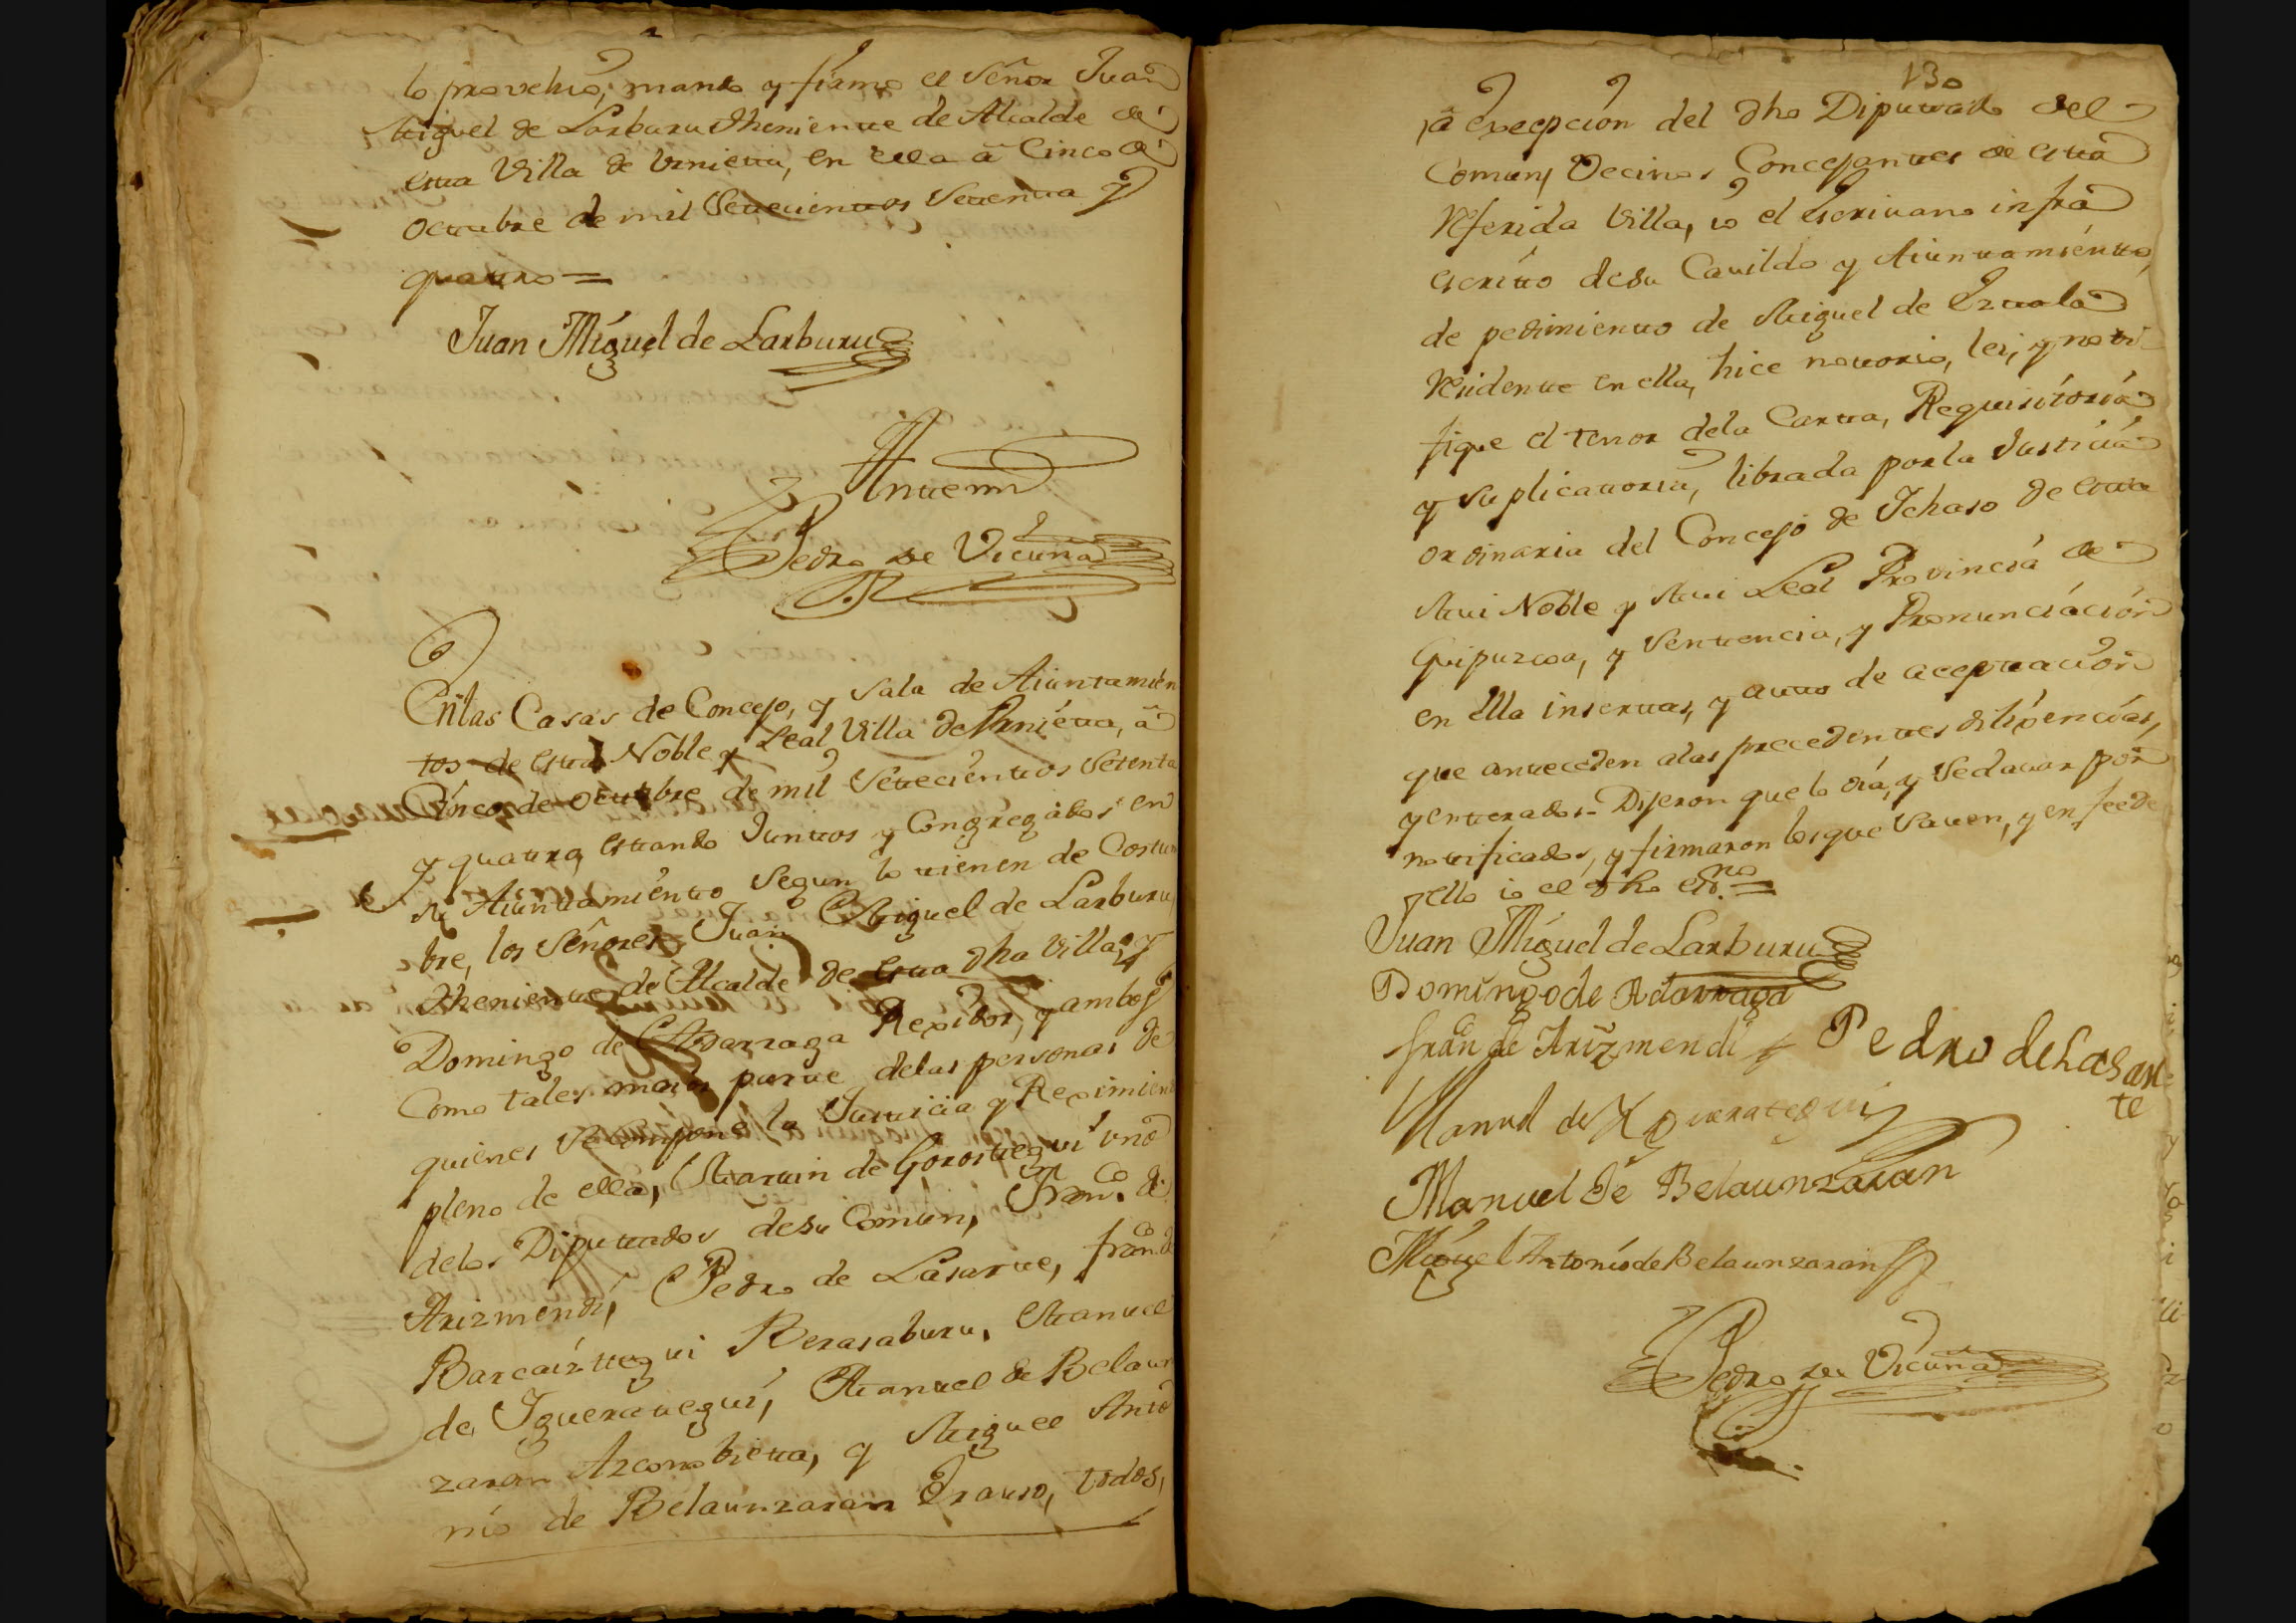 lo provehio, mando y firmo el Señor Juan
Miguel de Larburu Theniente de Alcalde de
esta Villa de Urnieta, en ella a Cinco de
octubre de mil Setecientos Setenta y
quatro =
Juan Miguel de Larburu
Antemi
Pedro de Vicuña
En las Casas de Concejo, y Sala de Aiuntamien
tos de esta Noble y Leal Villa de Urnieta, a
Cinco de octubre de mil Setecientos Setenta
y quatro, estando Juntos y Congregados en
su Aiuntamiento Segun lo tienen de Costum
bre, los Señores Juan Miguel de Larburu,
Theniente de Alcalde de esta dha Villa, y
Domingo de Adarraga Rexidor, y ambos
Como tales maior parte de las personas de
quienes se compone la Justicia y Reximien
pleno de ella, Martin de Gorostegui uno
delos Diputados desu Comun, Franco. de
Arizmendi, Pedro de Lasarte, franco. de
Barcaiztegui Berasaburu, Manuel
de Iguerategui, Manuel de Belaun
zaran Azconobieta, y Miguel Anto
nio de Belaunzaran Erauso, todos,
130
a excepcion del dho Diputado del
Comun, Vecinos Concejantes de esta
referida Villa, io el Escrivano infra
escrito desu Cavildo y Aiuntamiento,
de pedimiento de Miguel de
residente en ella, hice notorio, lei, y noti
fique el tenor dela Carta, Requisitoria
y suplicatoria, librada por la Justicia
ordinaria del Concejo de Ichaso de esta
Mui Noble y Mui Leal Provincia de
Guipuzcoa, y Sentencia, y Pronunciación
en ella insertas, y auto de aceptacion
que anteceden alas precedentes diligencias,
y enterados = Dijeron que lo oía, y Sedavan por
notificados, y firmaron los que Saven, y en fee de
ello io el dho esno. =
Juan Miguel de Larburu
Domingo de Adarraga
fran de Arizmendi Pedro de Lasar
te
Manuel de Yguerategui
Manuel de Belaunzaran
Miguel Antonio de Belaunzaran
Pedro de Vicuña